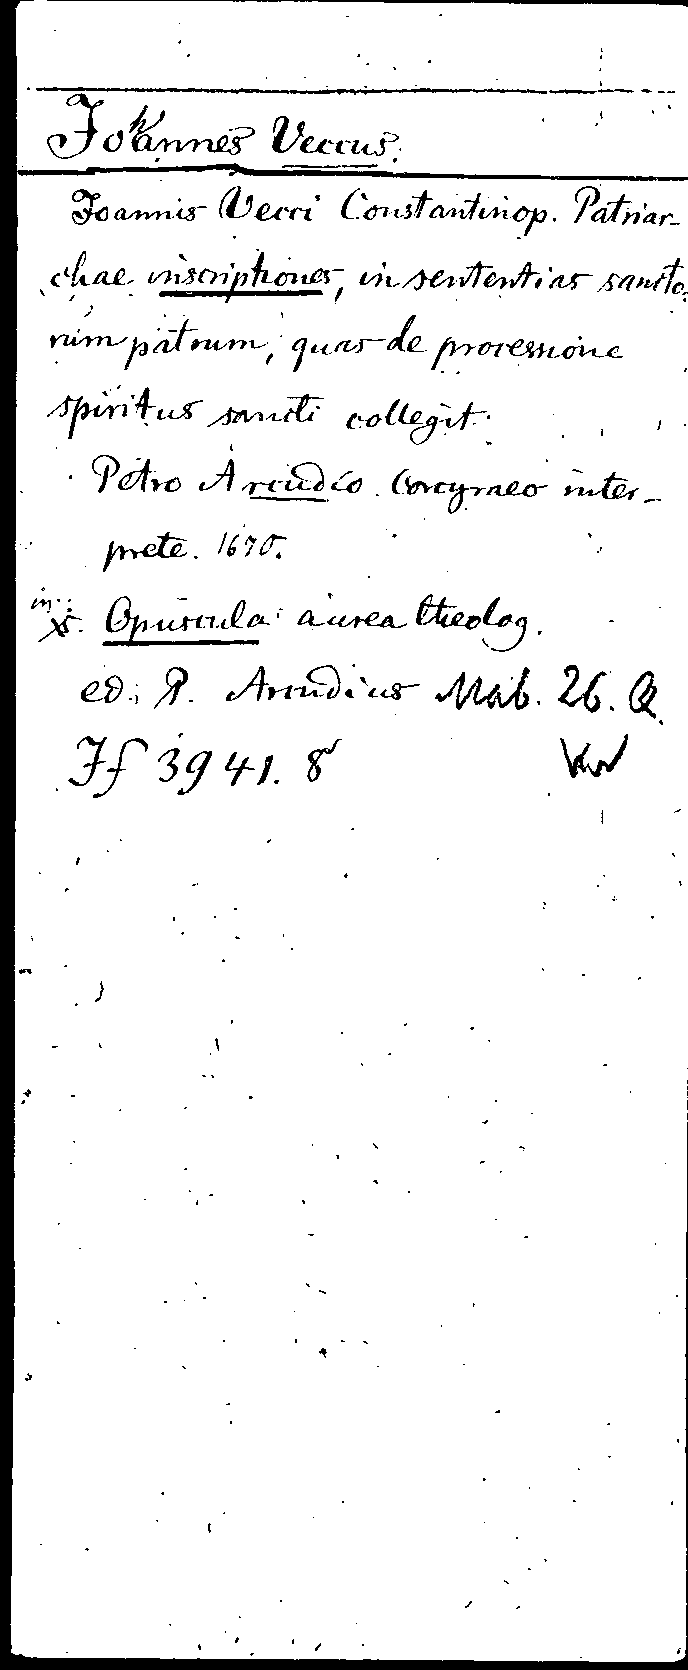 Johannes Veccus.
Joannis Vecci Constantinop. Patriar-
chae inscriptiones, in sententias sancto-
rum patrum, quas de processione
spiritus sancti collegit.
Petro Arcudio Corcyraeo inter-
prete. 1670.
in:
Opuscula aurea theolog.
ed. P. Arcudius Mab. 26. Q.
If 3941. 8